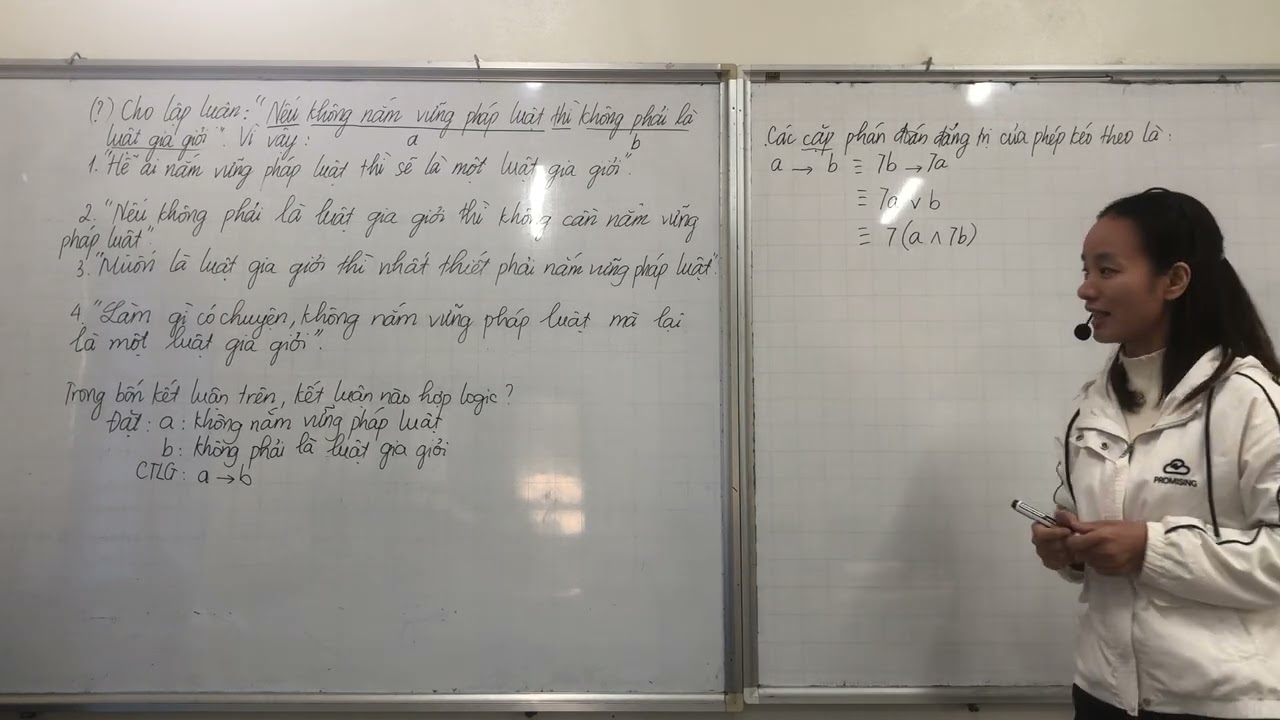 (?) Cho lập luận: "Nếu không nắm vững pháp luật thì không phải là
luật gia giỏi". Vì vậy:
a
b
1. "Hễ ai nắm vững pháp luật thì sẽ là một luật gia giỏi".
2. "Nếu không phải là luật gia giỏi thì không cần nắm vững
pháp luật".
3. "Muốn là luật gia giỏi thì nhất thiết phải nắm vững pháp luật".
4. "Làm gì có chuyện, không nắm vững pháp luật mà lại
là một luật gia giỏi".
Trong bốn kết luận trên, kết luận nào hợp logic?
Đặt: a: không nắm vững pháp luật
b: không phải là luật gia giỏi
CTLG: a → b
Các cặp phán đoán đẳng trị của phép kéo theo là:
a → b ≡ 7b → 7a
≡ 7a ∨ b
≡ 7(a ∧ 7b)
PROMISING